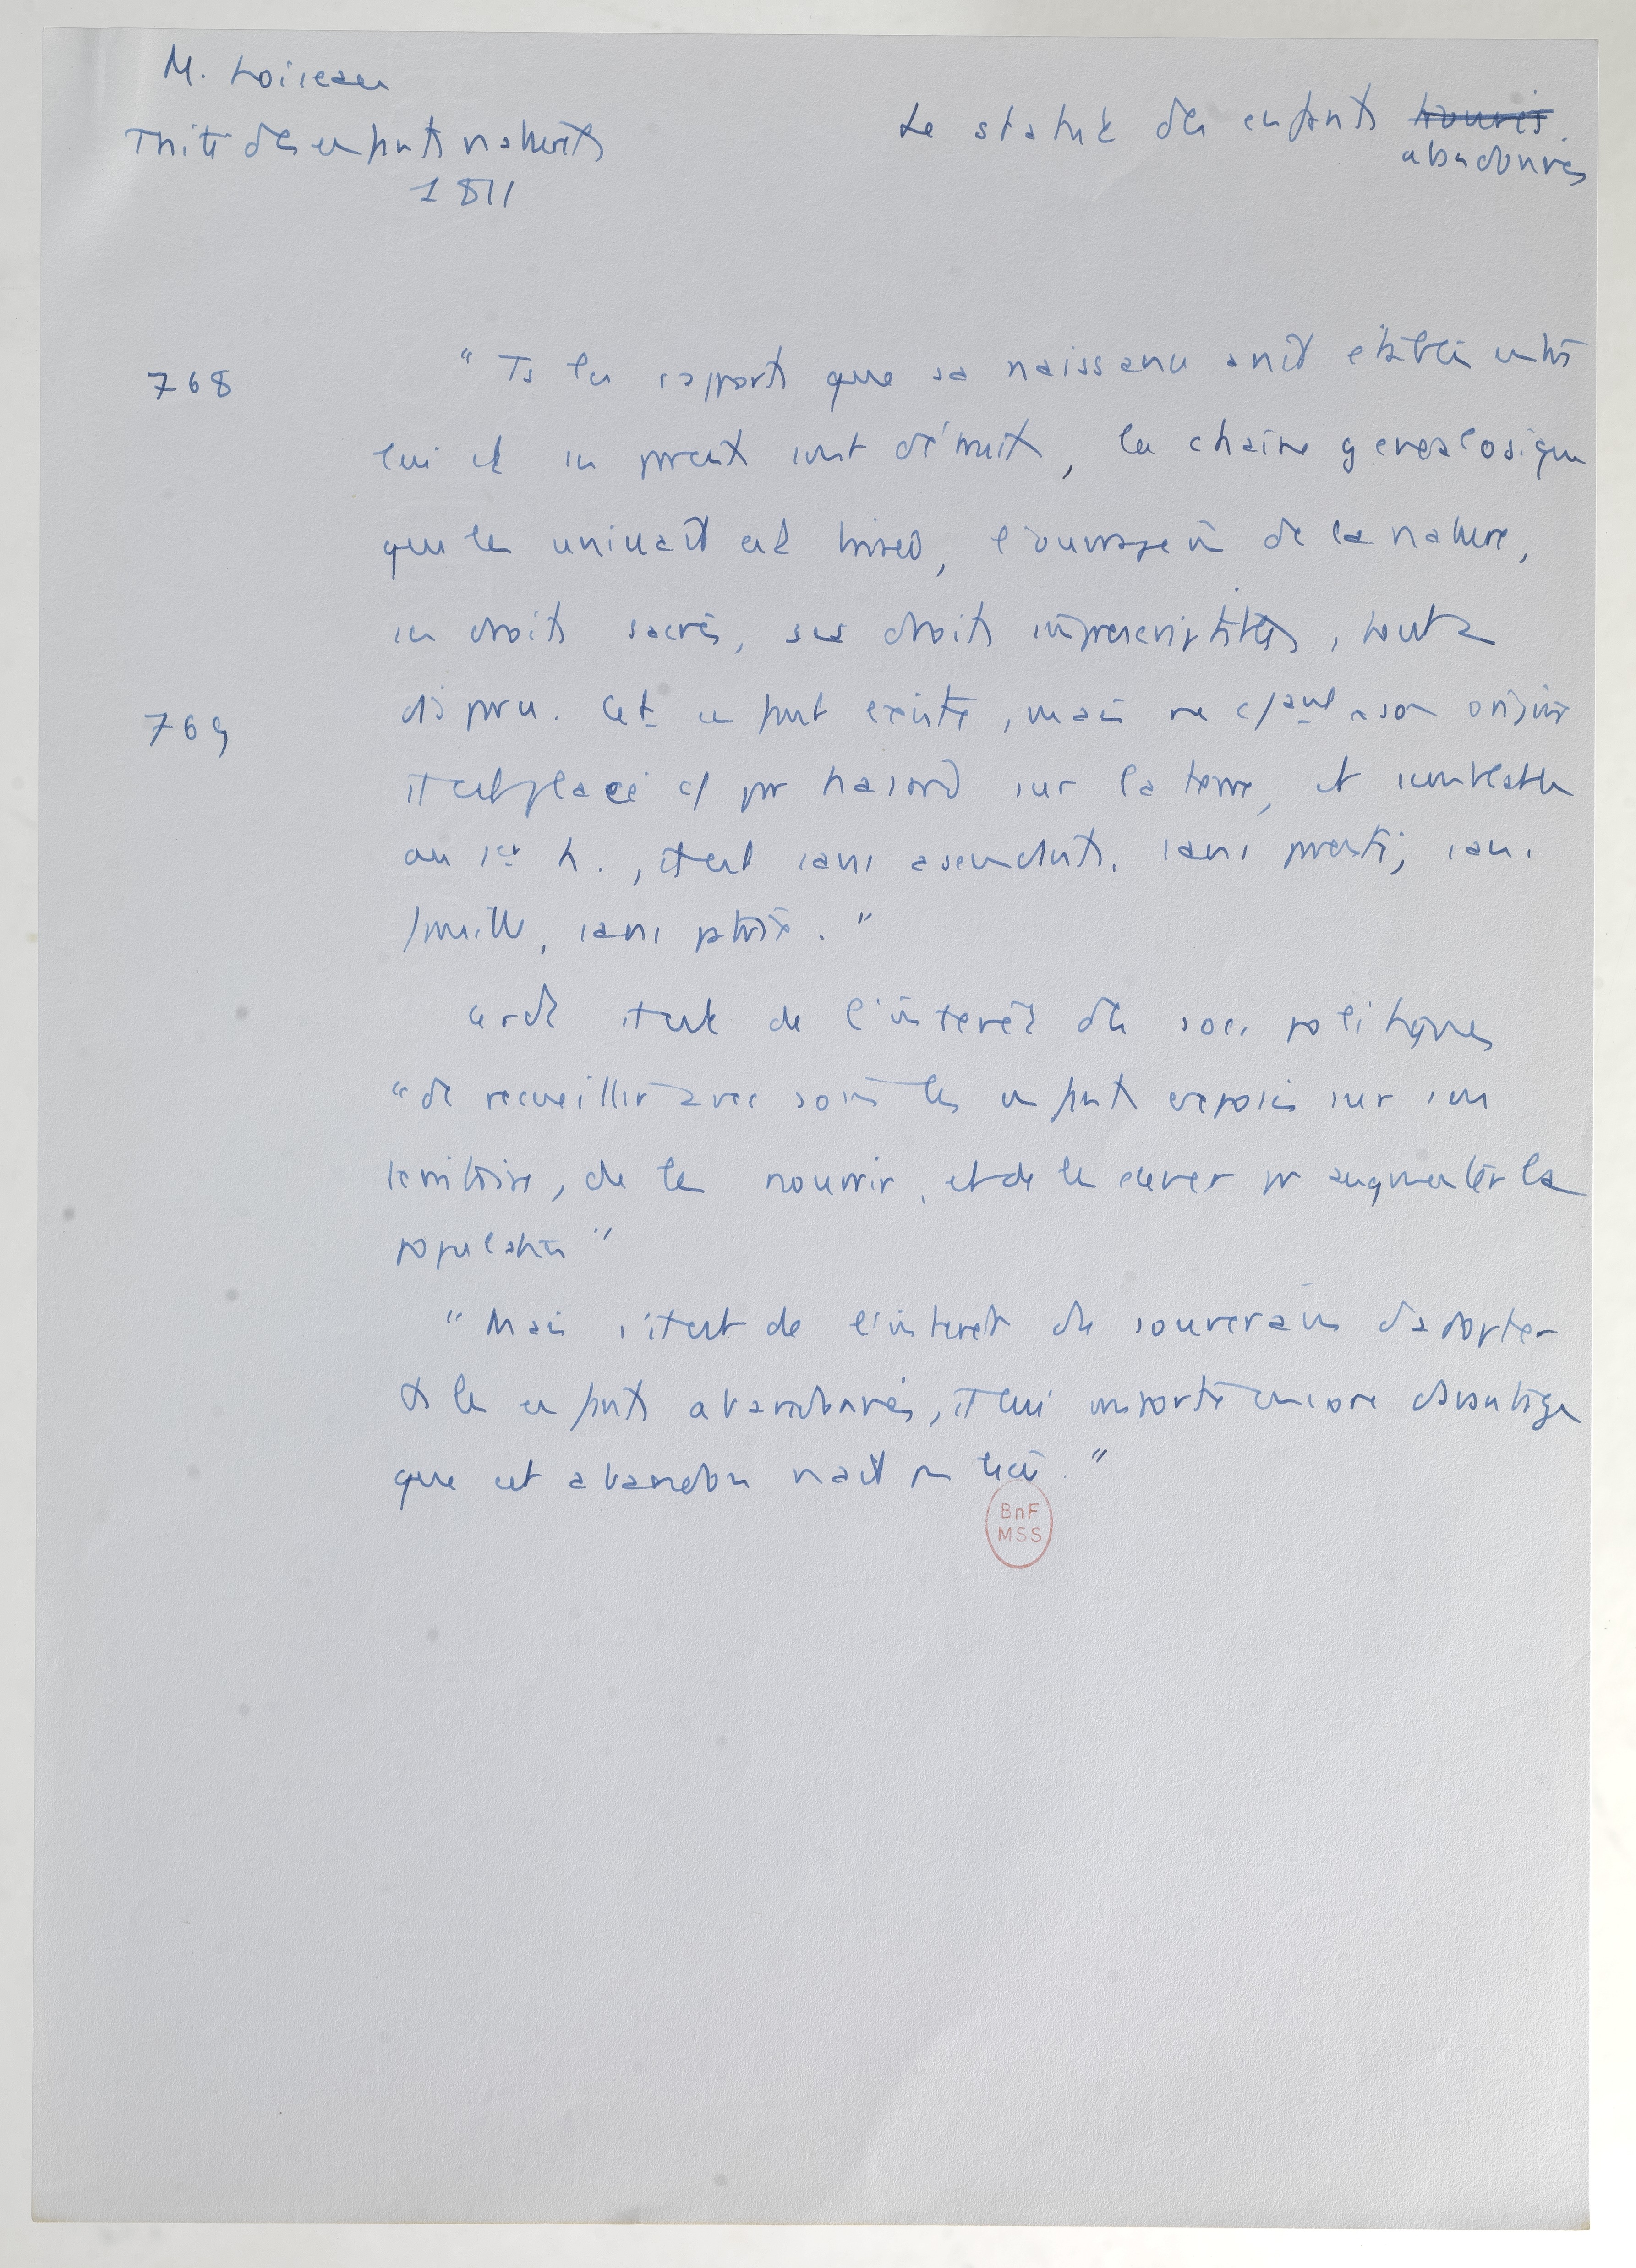 M. Loiseau
Traité des enfants naturels
1811
Le statut des enfants trouvés.
abandonnés
768
"Ts les rapports que sa naissance avait établis entre
lui et ses parents sont détruits, la chaîne généalogique
qui les unissait est brisée, l'ouvrage de la nature,
ses droits sacrés, ses droits imprescriptibles, tout a
769
disparu. Cet enfant existe, mais ne c/ant son origine
il est placé c/ par hasard sur la terre, et semblable
au 1er h., il est sans ascendants, sans parents, sans
famille, sans patrie."
il est de l'intérêt des soc. politiques
"de recueillir avec soin les enfants exposés sur leur
territoire, de les nourrir, et de les élever pr augmenter la
population"
"Mais s'il est de l'intérêt du souverain d'adopter
ts les enfants abandonnés, il lui importe encore davantage
que cet abandon n'ait pas lieu."
BnF
MSS